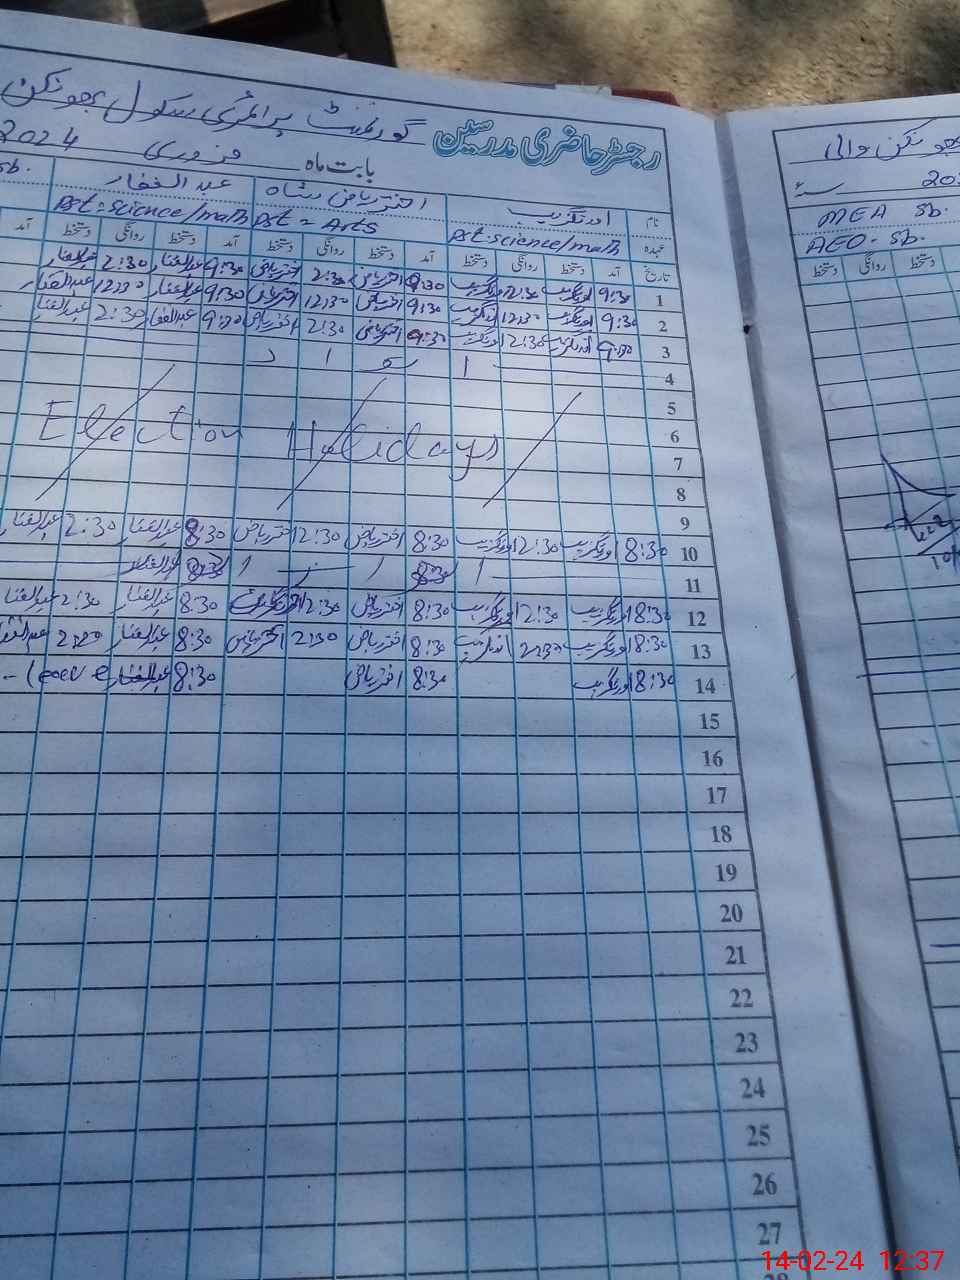 رجسٹر حاضری مدرسین گورنمنٹ پرائمری سکول
بابت ماہ فروری 2024
نام اورنگزیب اختر ریاض شاہ عبدالغفار sb.
عہدہ Pst:science/math Pst = Arts Pst:science/math
تاریخ آمد دستخط روانگی دستخط آمد دستخط روانگی دستخط آمد دستخط روانگی دستخط آمد
1 9:30 اورنگزیب 12:30 اورنگزیب 9:30 اختر ریاض 2:30 اختر ریاض 9:30 عبدالغفار 2:30 عبدالغفار
2 9:30 اورنگزیب 12:30 اورنگزیب 9:30 اختر ریاض 12:30 اختر ریاض 9:30 عبدالغفار 12:30 عبدالغفار
3 9:30 اورنگزیب 12:30 اورنگزیب 9:30 اختر ریاض 2:30 اختر ریاض 9:30 عبدالغفار 2:30 عبدالغفار
4 ا تو ا ر
5
6 Election Holidays
7
8
9
10 8:30 اورنگزیب 12:30 اورنگزیب 8:30 اختر ریاض 12:30 اختر ریاض 8:30 عبدالغفار 2:30 عبدالغفار
11
12 8:30 اورنگزیب 12:30 اورنگزیب 8:30 اختر ریاض 12:30 8:30 عبدالغفار 2:30 عبدالغفار
13 8:30 اورنگزیب 2:30 اورنگزیب 8:30 اختر ریاض 2:30 اختر ریاض 8:30 عبدالغفار 2:30 عبدالغفار
14 8:30 اورنگزیب 8:30 اختر ریاض 8:30 عبدالغفار
15
16
17
18
19
20
21
22
23
24
25
26
27
28
والی
MEA sb.
AEO. sb.
دستخط روانگی دستخط
14-02-24 12:37